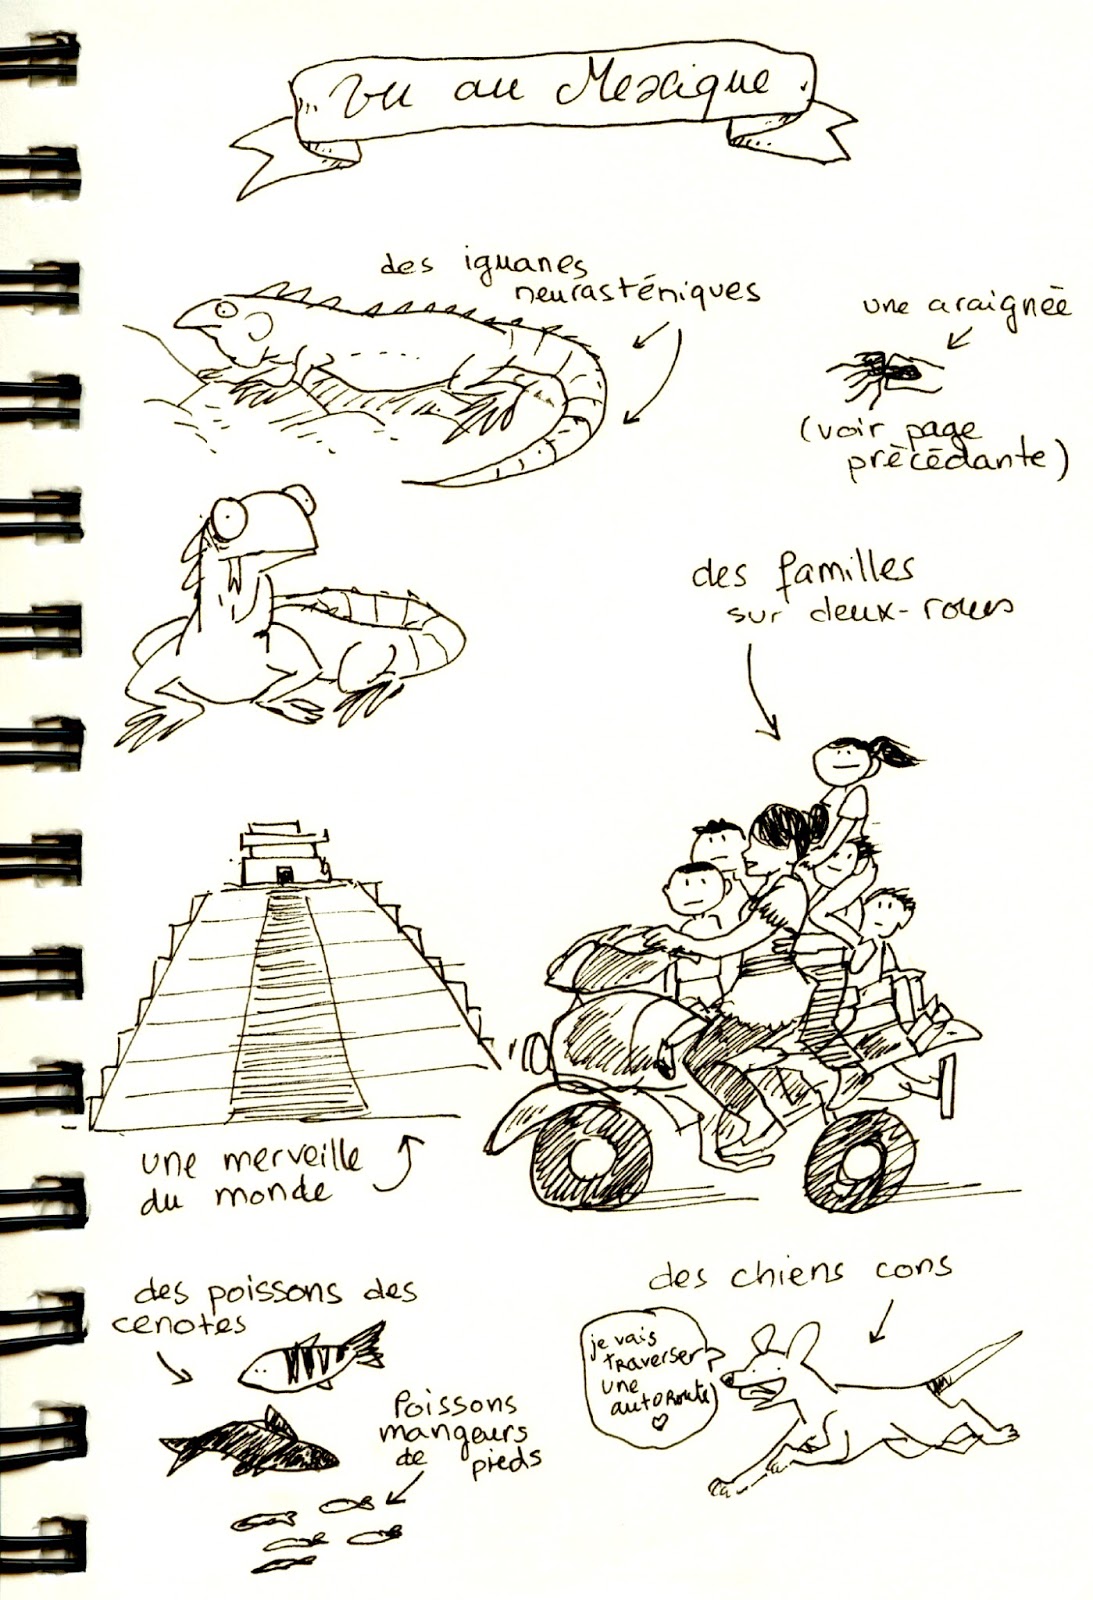 Vu au Mexique
des iguanes
neurasténiques
une araignée
(voir page
précédante)
des familles
sur deux-roues
une merveille
du monde
des poissons des
cenotes
Poissons
mangeurs
de pieds
des chiens cons
je vais
traverser
une
autoroute